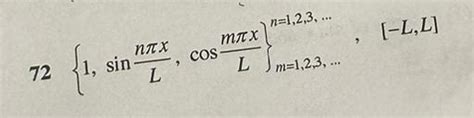 72 {1, sin nπx/L, cos mπx/L}ⁿ⁼¹,²,³, ...ₘ₌₁,₂,₃, ... , [-L,L]